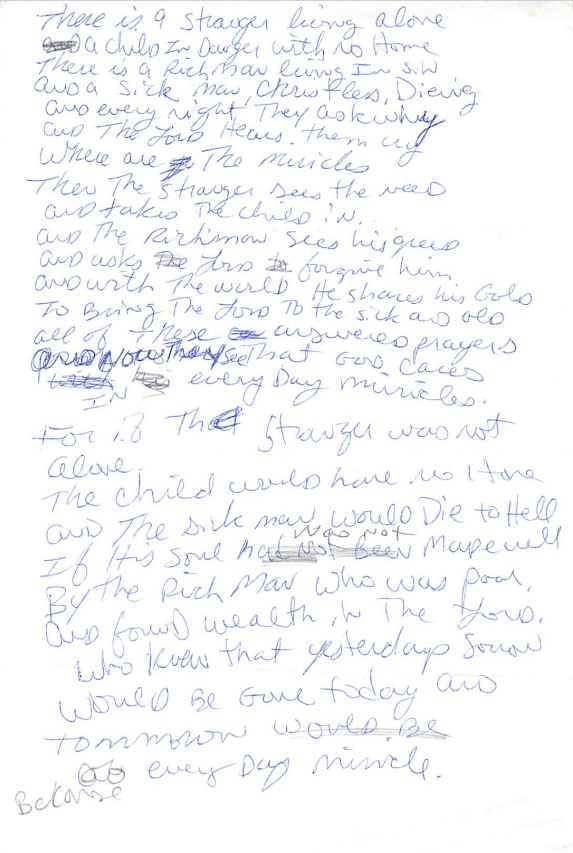 There is a stranger living alone
and a child In Danger with no Home
There is a Rich Man living In Sin
and a Sick Man, Christless, Dieing
and every night, They ask why
and The Lord Hears them cry
Where are The Miricles
Then The Stranger sees the need
and takes The child in.
and The Richman Sees his greed
and asks The Lord to forgive him
and with The world He shares his Gold
To Bring The Lord To the sick and old
all of These answered prayers
and Now They see That God Cares
IN every Day miricles.
For if That Stranger was not
alone.
The child would have no Home
and The sick man would Die to Hell
was not
If His Soul had not Been Made well
By the Rich Man who was poor,
and found wealth in The Lord.
Who knew that yesterdays Sorrow
would Be Gone today and
tommorow would Be
every Day miricle.
Because